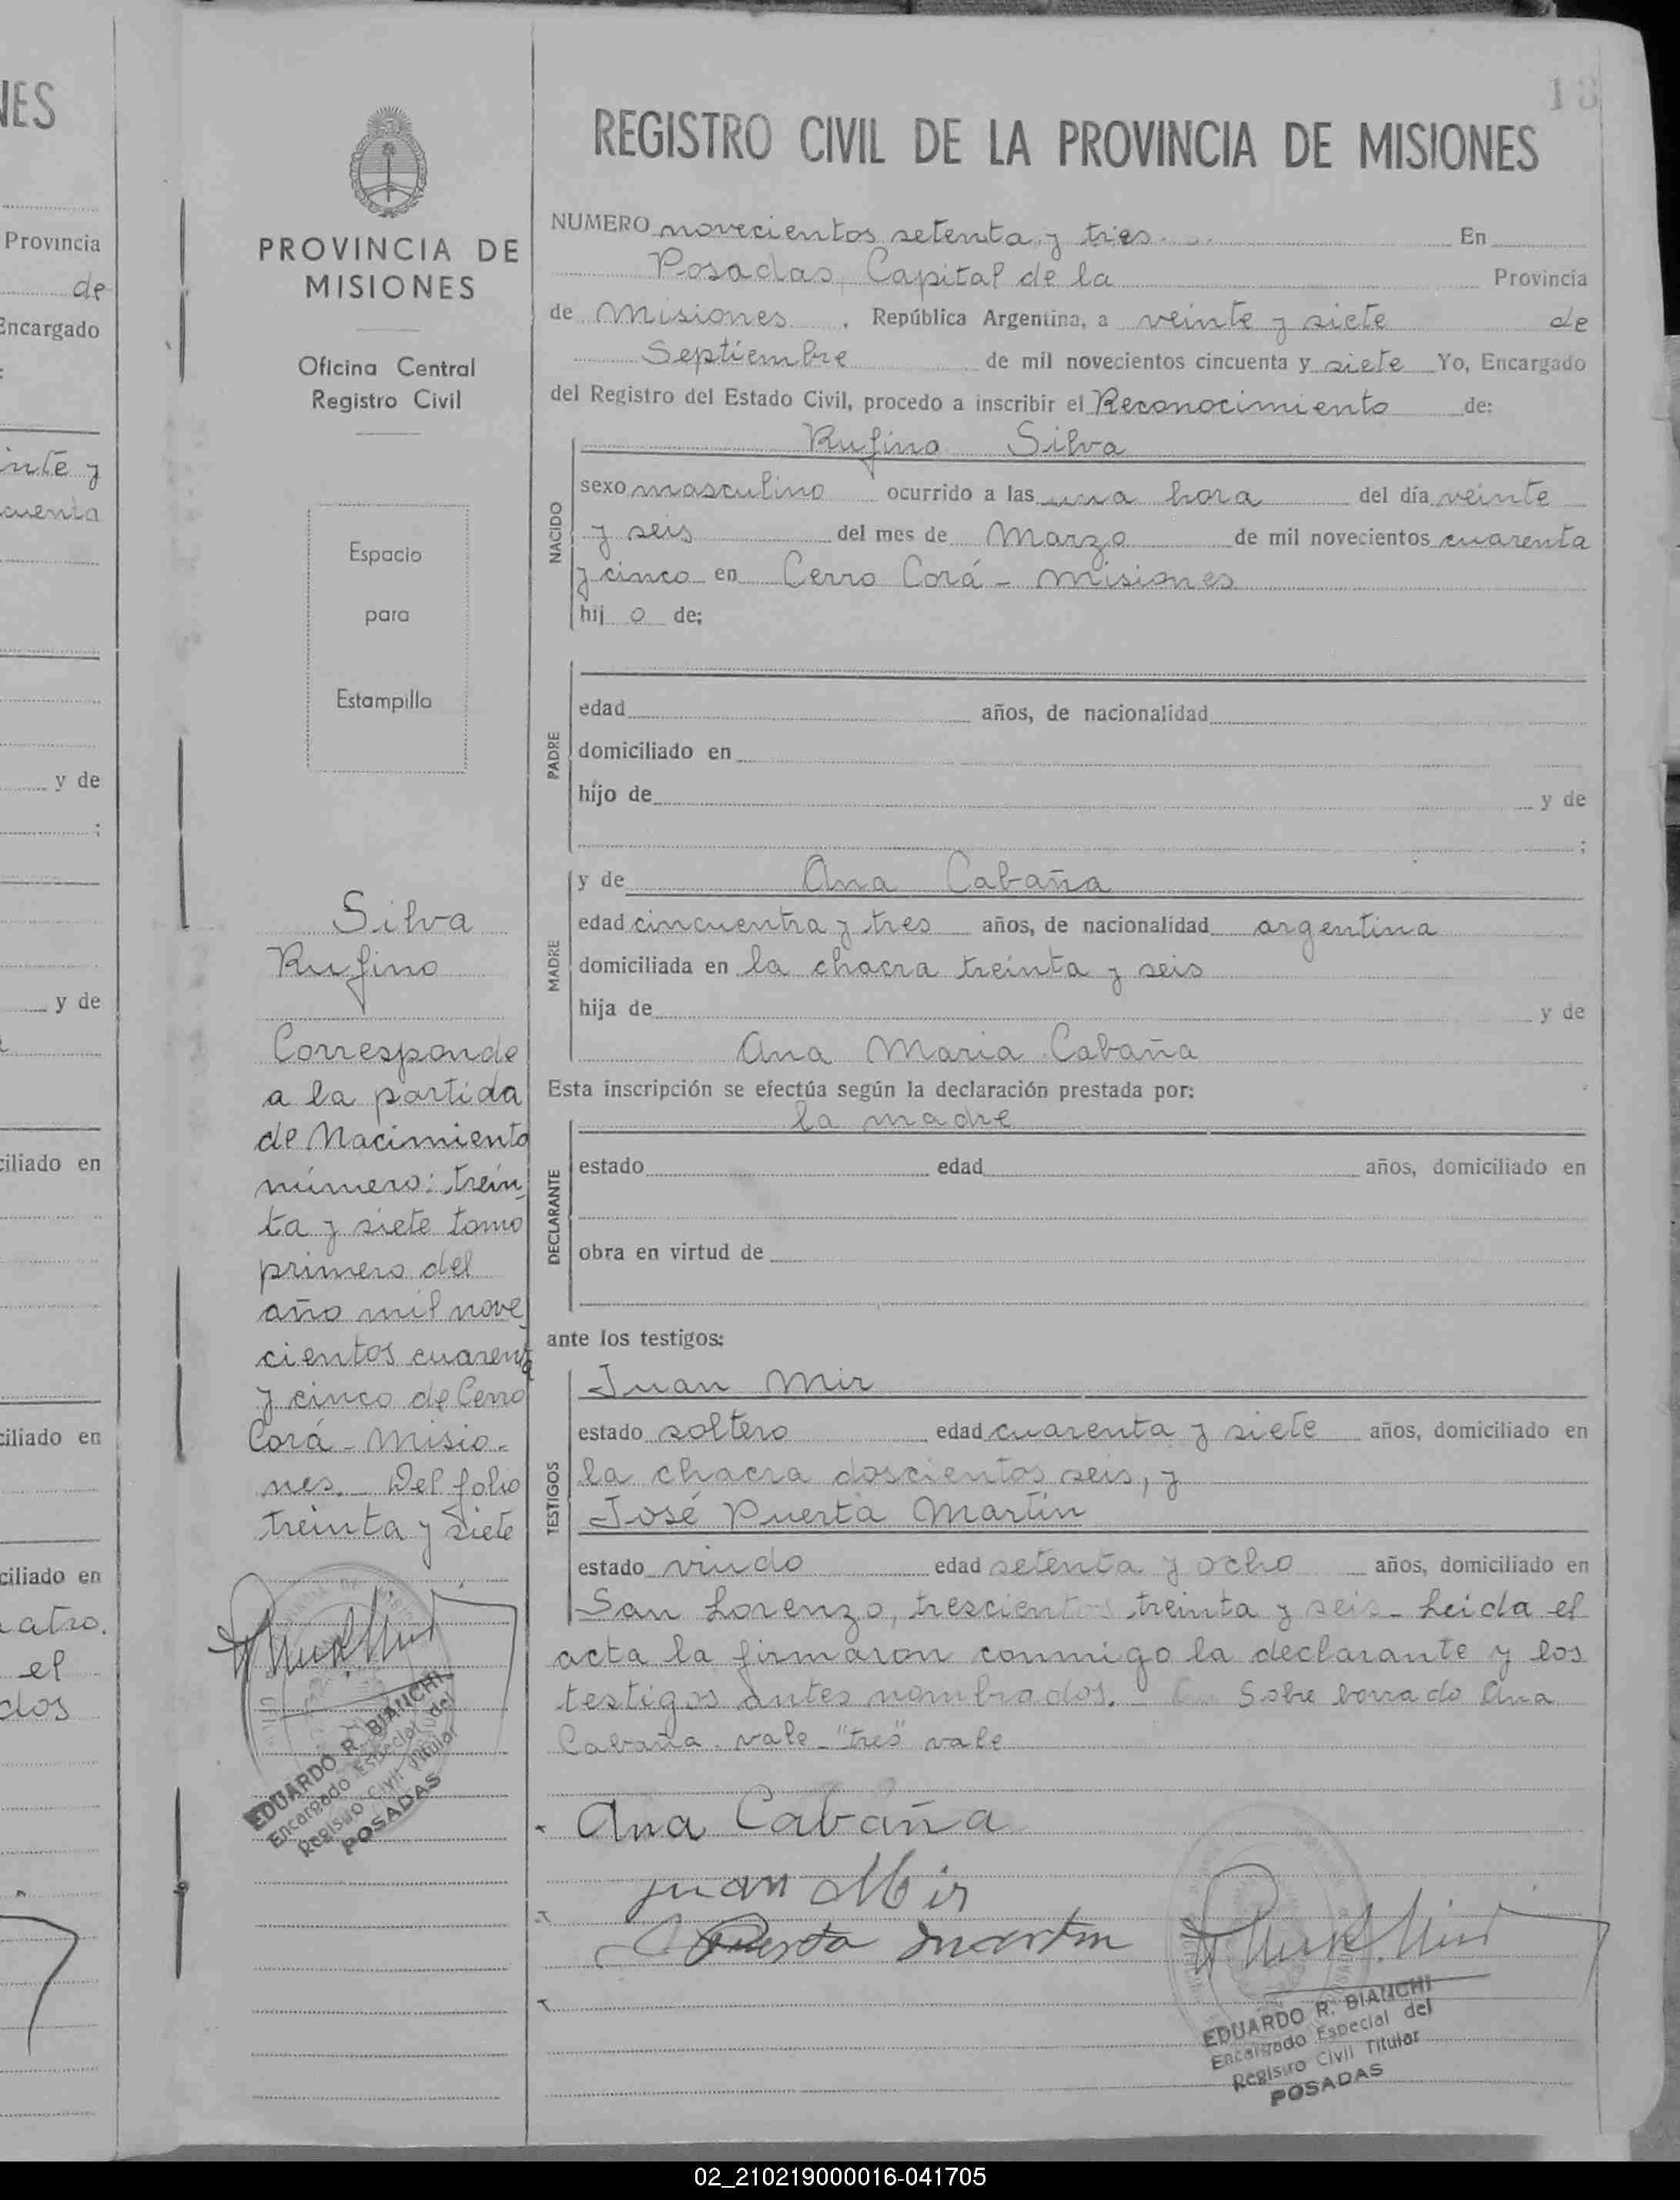 NES
Provincia
de
Encargado
inte y
cuenta
y de
;
y de
ciliado en
ciliado en
ciliado en
atro.
el
dos
PROVINCIA DE
MISIONES
Oficina Central
Registro Civil
Espacio
para
Estampilla
Silva
Rufino
Corresponde
a la partida
de Nacimiento
número: trein
ta y siete tomo
primero del
año mil nove
cientos cuarenta
y cinco de Cerro
Corá - Misio-
nes. - Del folio
treinta y siete
EDUARDO R. BIANCHI
Encargado Especial del
Registro Civil Titular
POSADAS
13
REGISTRO CIVIL DE LA PROVINCIA DE MISIONES
NUMERO novecientos setenta y tres En
Posadas, Capital de la Provincia
de Misiones, República Argentina, a veinte y siete de
Septiembre de mil novecientos cincuenta y siete Yo, Encargado
del Registro del Estado Civil, procedo a inscribir el Reconocimiento de:
Rufino Silva
NACIDO
sexo masculino ocurrido a las una hora del día veinte
y seis del mes de Marzo de mil novecientos cuarenta
y cinco en Cerro Corá - Misiones
hij o de;
PADRE
edad años, de nacionalidad
domiciliado en
hijo de y de
;
MADRE
y de Ana Cabaña
edad cincuentra y tres años, de nacionalidad argentina
domiciliada en la chacra treinta y seis
hija de y de
Ana Maria Cabaña
Esta inscripción se efectúa según la declaración prestada por:
la madre
DECLARANTE
estado edad años, domiciliado en
obra en virtud de
ante los testigos:
TESTIGOS
Juan Mir
estado soltero edad cuarenta y siete años, domiciliado en
la chacra doscientos seis, y
José Puerta Martín
estado viudo edad setenta y ocho años, domiciliado en
San Lorenzo, trescientos treinta y seis - Leida el
acta la firmaron conmigo la declarante y los
testigos antes nombrados. - Sobre borrado Ana
Cabaña. vale - "tres" vale
Ana Cabaña
Juan Mir
Puerta Martin
EDUARDO R. BIANCHI
Encargado Especial del
Registro Civil Titular
POSADAS
02_210219000016-041705